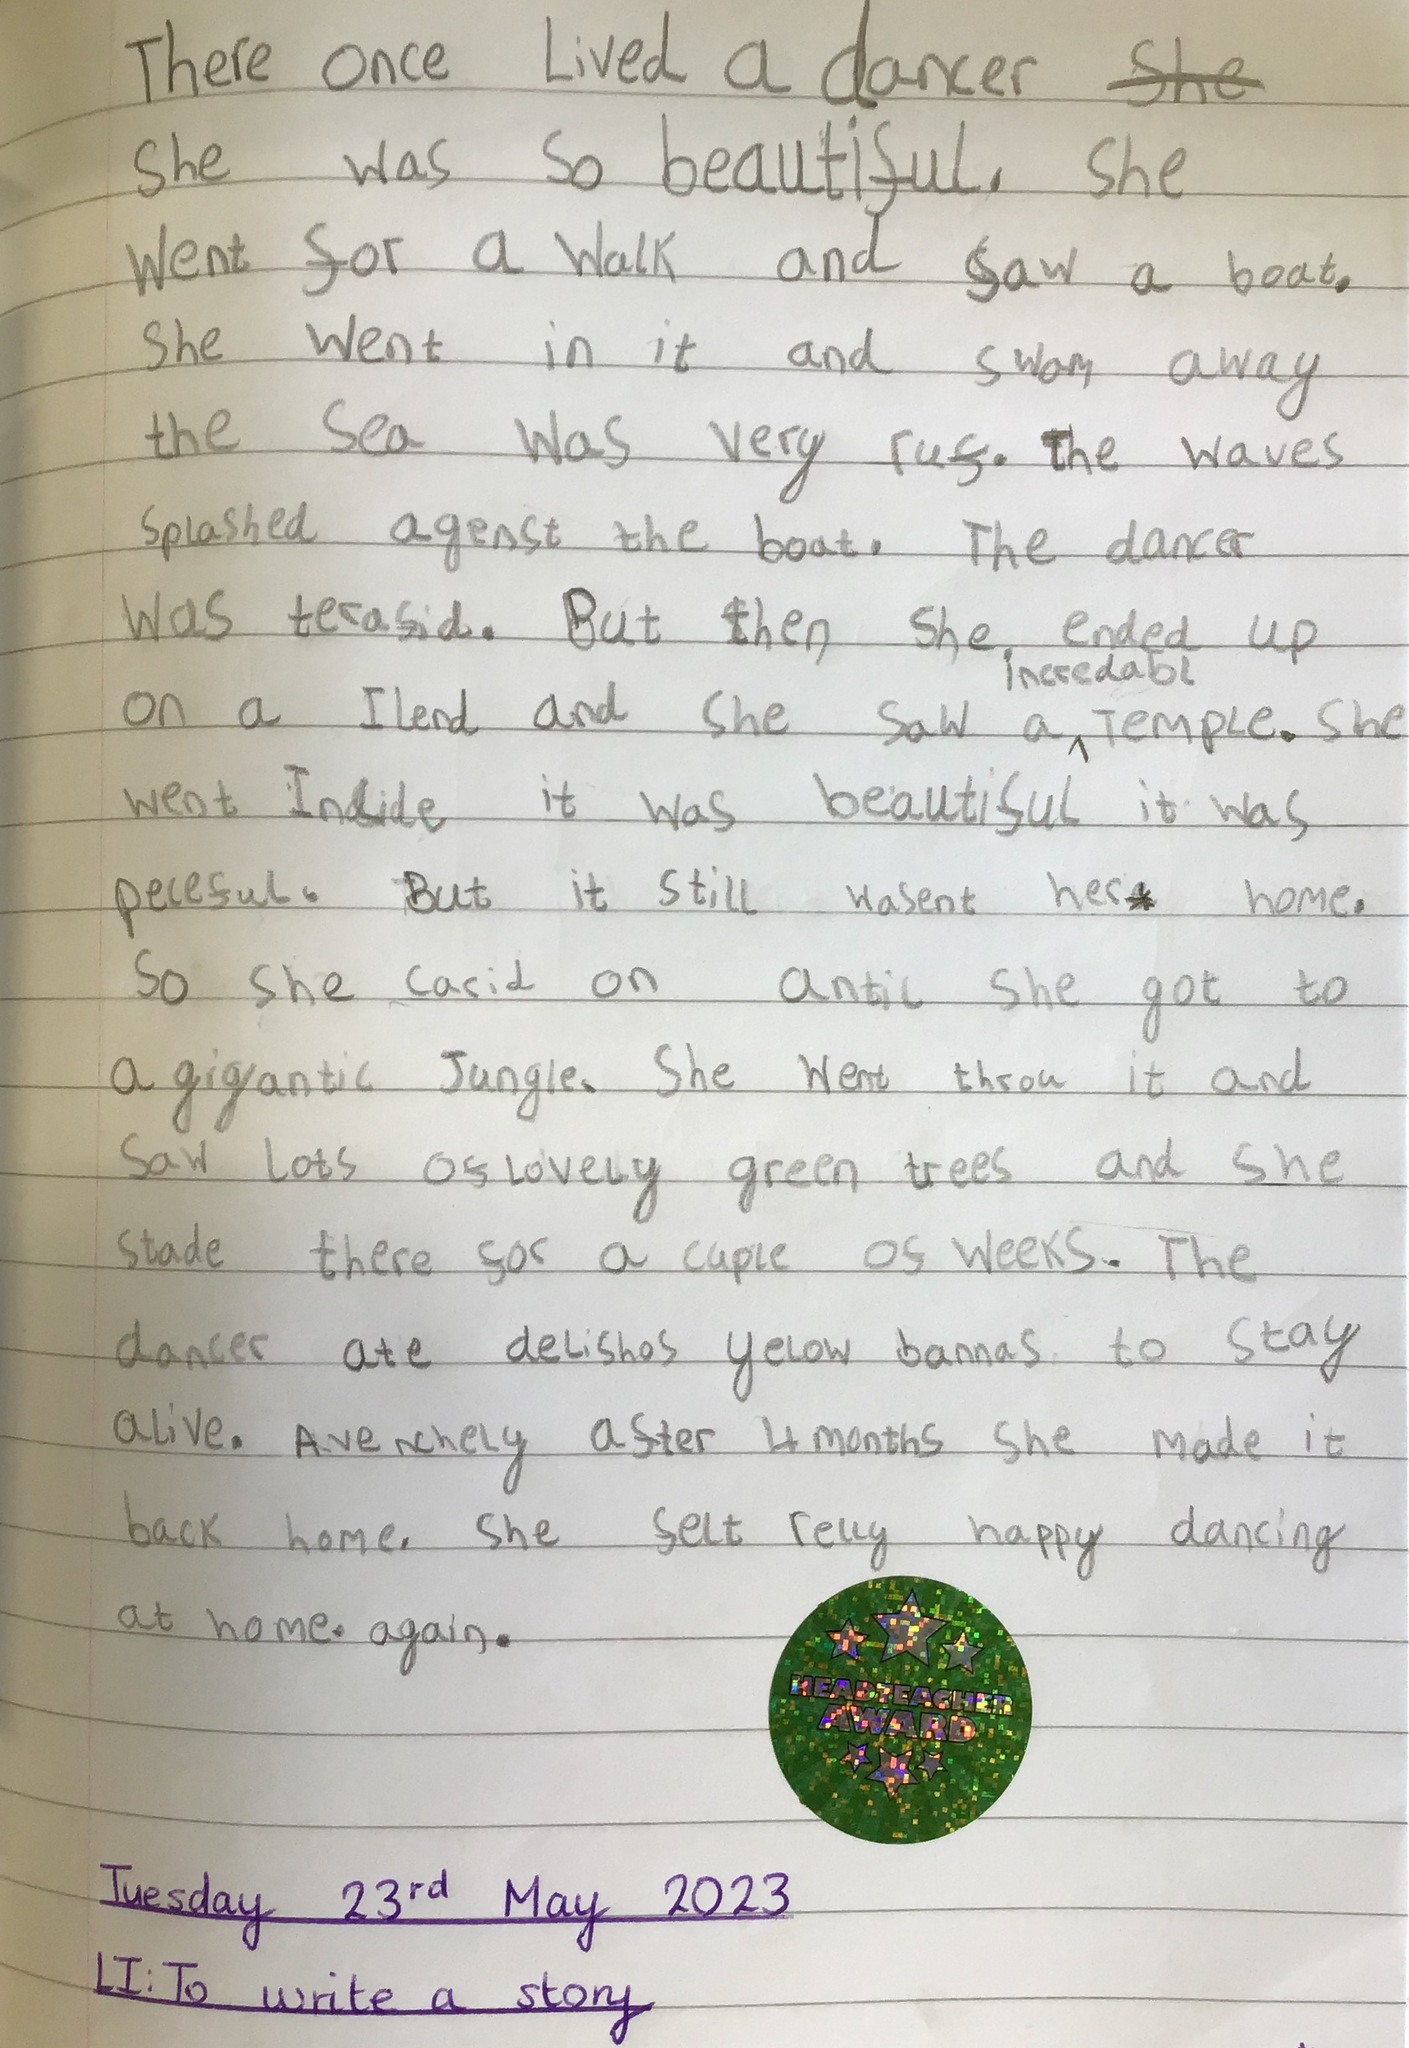 There once Lived a dancer She
She was so beautiful. She
went for a walk and saw a boat.
She went in it and swam away
the sea was very ruf. The waves
splashed agenst the boat. The dancer
was terafid. But then she ended up
incredabl
on a Ilend and she saw a TEMPLE. She
went Inside it was beautiful it was
peceful. But it still wasent her home.
So she carid on antil she got to
a gigantic Jungle. She went throu it and
saw Lots of Lovely green trees and she
stade there for a cuple of weeks. The
dancer ate delishos yelow bannas to stay
alive. Avenchely after 4 months she made it
back home. She felt relly happy dancing
at home. again.
HEADTEACHER
AWARD
Tuesday 23rd May 2023
LI: To write a story